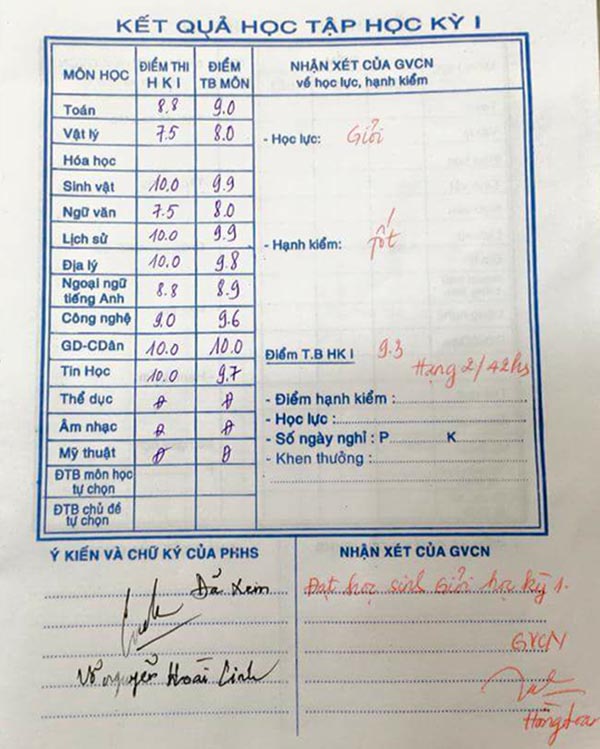 KẾT QUẢ HỌC TẬP HỌC KỲ I
MÔN HỌC ĐIỂM THI H K I ĐIỂM TB MÔN NHẬN XÉT CỦA GVCN
về học lực, hạnh kiểm
Toán 8.8 9.0
Vật lý 7.5 8.0 - Học lực: Giỏi
Hóa học
Sinh vật 10.0 9.9
Ngữ văn 7.5 8.0
Lịch sử 10.0 9.9 - Hạnh kiểm: Tốt
Địa lý 10.0 9.8
Ngoại ngữ
tiếng Anh 8.8 8.9
Công nghệ 9.0 9.6
GD-CDân 10.0 10.0 Điểm T.B HK I 9.3
Tin Học 10.0 9.7 Hạng 2/42hs
Thể dục Đ Đ - Điểm hạnh kiểm :
- Học lực :
Âm nhạc Đ Đ - Số ngày nghỉ : P K
Mỹ thuật Đ Đ - Khen thưởng :
ĐTB môn học
tự chọn
ĐTB chủ đề
tự chọn
Ý KIẾN VÀ CHỮ KÝ CỦA PHHS
Đã xem
Võ Nguyễn Hoài Linh
NHẬN XÉT CỦA GVCN
Đạt học sinh Giỏi học kỳ 1.
GVCN